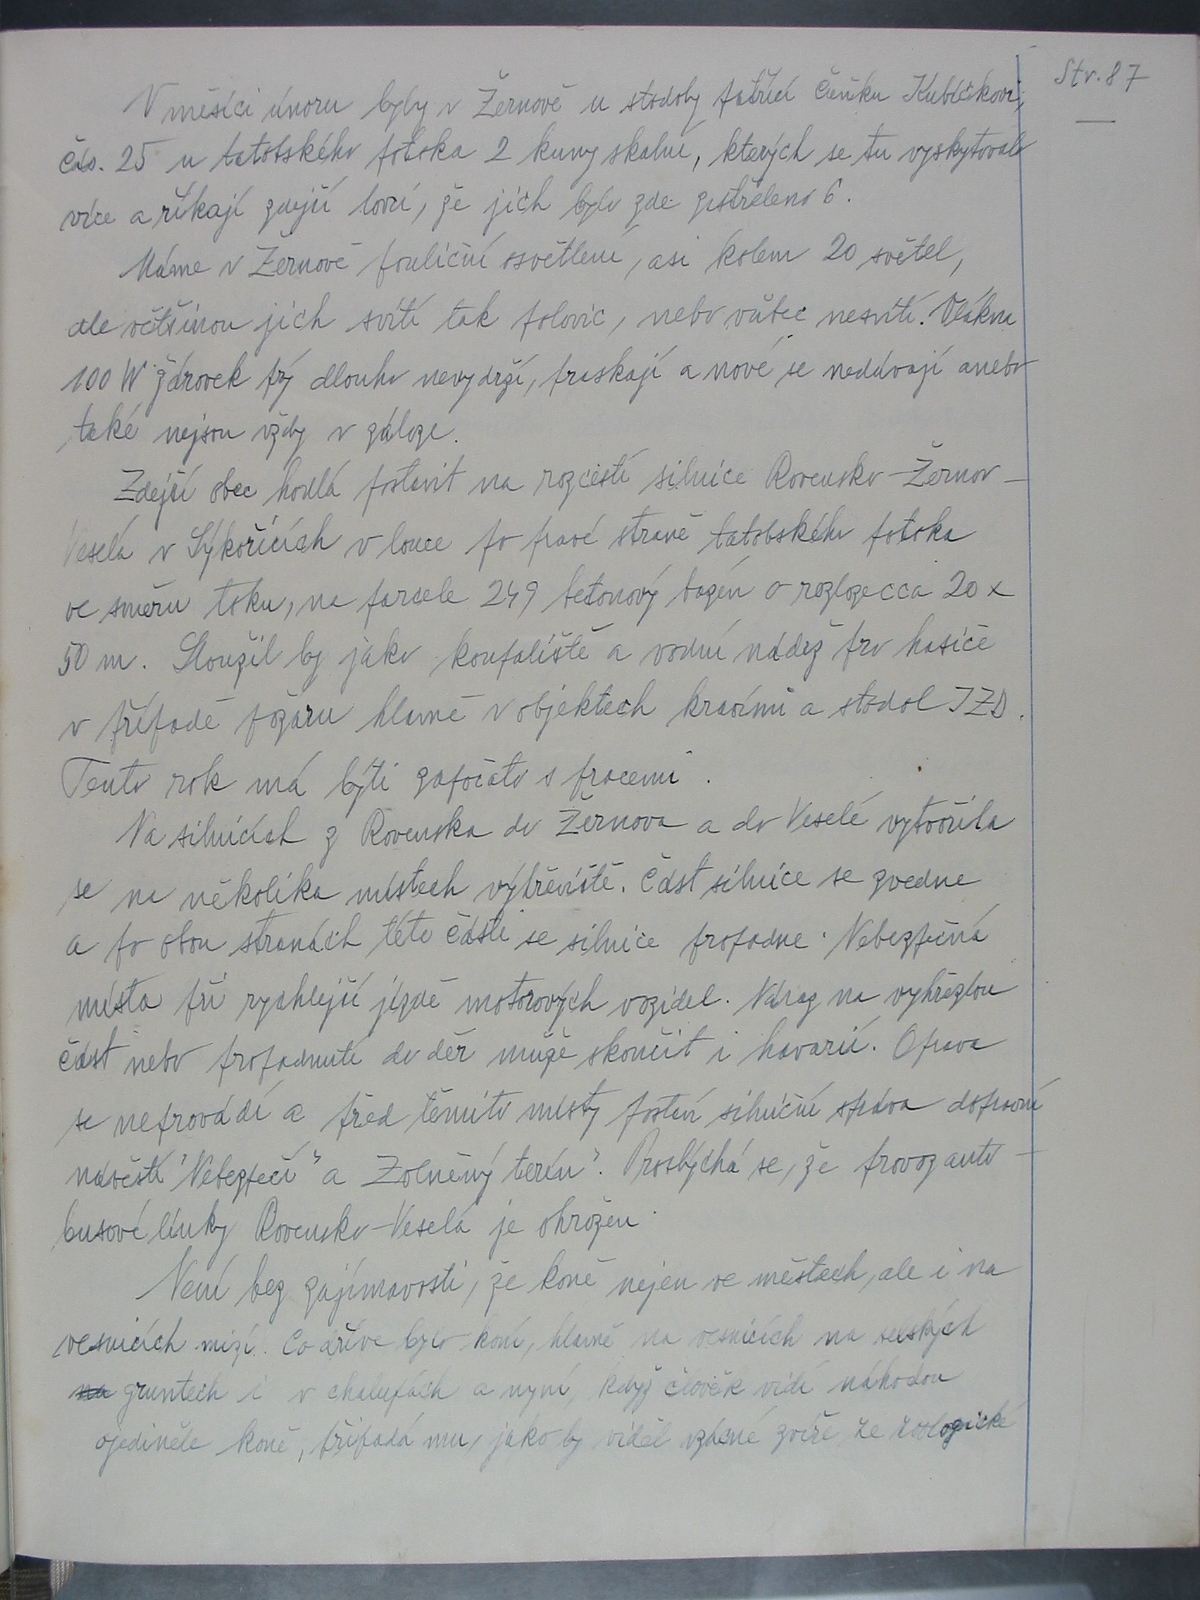 Str. 87
V měsíci únoru byly v Žernově u stodoby patřící Čeňku Kubíčkovi,
čís. 25 u tatobského potoka 2 kuny skalní, kterých se tu vyskytovalo
více a říkají zdejší lovci, že jich bylo zde zastřeleno 6.
Máme v Žernově pouliční osvětlení, asi kolem 20 světel,
ale většinou jich svítí tak polovic, nebo vůbec nesvítí. Vlákna
100 W žárovek prý dlouho nevydrží, praskají a nové se nedávají anebo
také nejsou vždy v záloze.
Zdejší obec hodlá postavit na rozcestí silnice Rovensko-Žernov-
Veselá v Sýkořicích v louce po pravé straně tatobského potoka
ve směru toku, na parcele 249 betonový bazén o rozloze cca 20 x
50 m. Sloužil by jako koupaliště a vodní nádrž pro hasiče
v případě požáru hlavně v objektech kravínů a stodol JZD.
Tento rok má býti započato s pracemi.
Na silnicích z Rovenska do Žernova a do Veselé vytvořila
se na několika místech výhřeviště. Část silnice se zvedne
a po obou stranách této části se silnice propadne. Nebezpečná
místa při rychlejší jízdě motorových vozidel. Náraz na vyhřezlou
část nebo propadnutí do děr může skončit i havarií. Oprava
se neprovádí a před těmito místy postaví silniční správa dopravní
návěstí "Nebezpečí" a Zvlněný terén". Proslýchá se, že provoz auto-
busové linky Rovensko-Veselá je ohrožen.
Není bez zajímavosti, že koně nejen ve městech, ale i na
vesnicích mizí. Co dříve bylo koní, hlavně na vesnicích na selských
na gruntech i v chalupách a nyní, když člověk vidí náhodou
ojediněle koně, připadá mu, jako by viděl vzácné zvíře ze zoologické